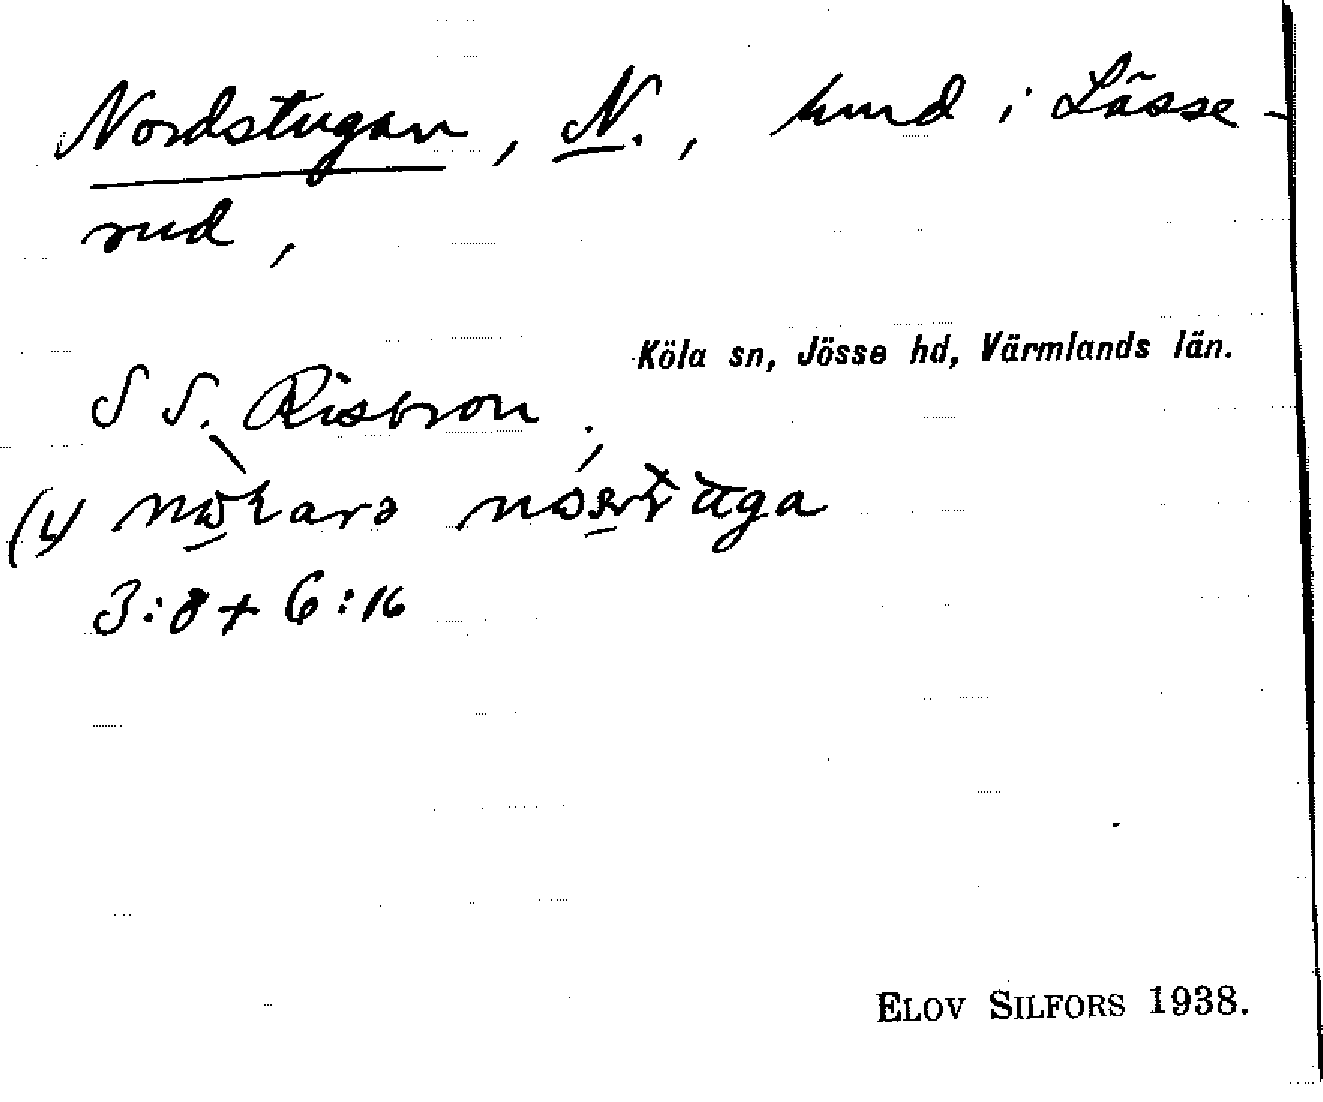 Nordstugan, N., hmd i Lässe-
rud,
Köla sn, Jösse hd, Värmlands län.
S S. Risbron.
3:8 + 6:16
ELOV SILFORS 1938.